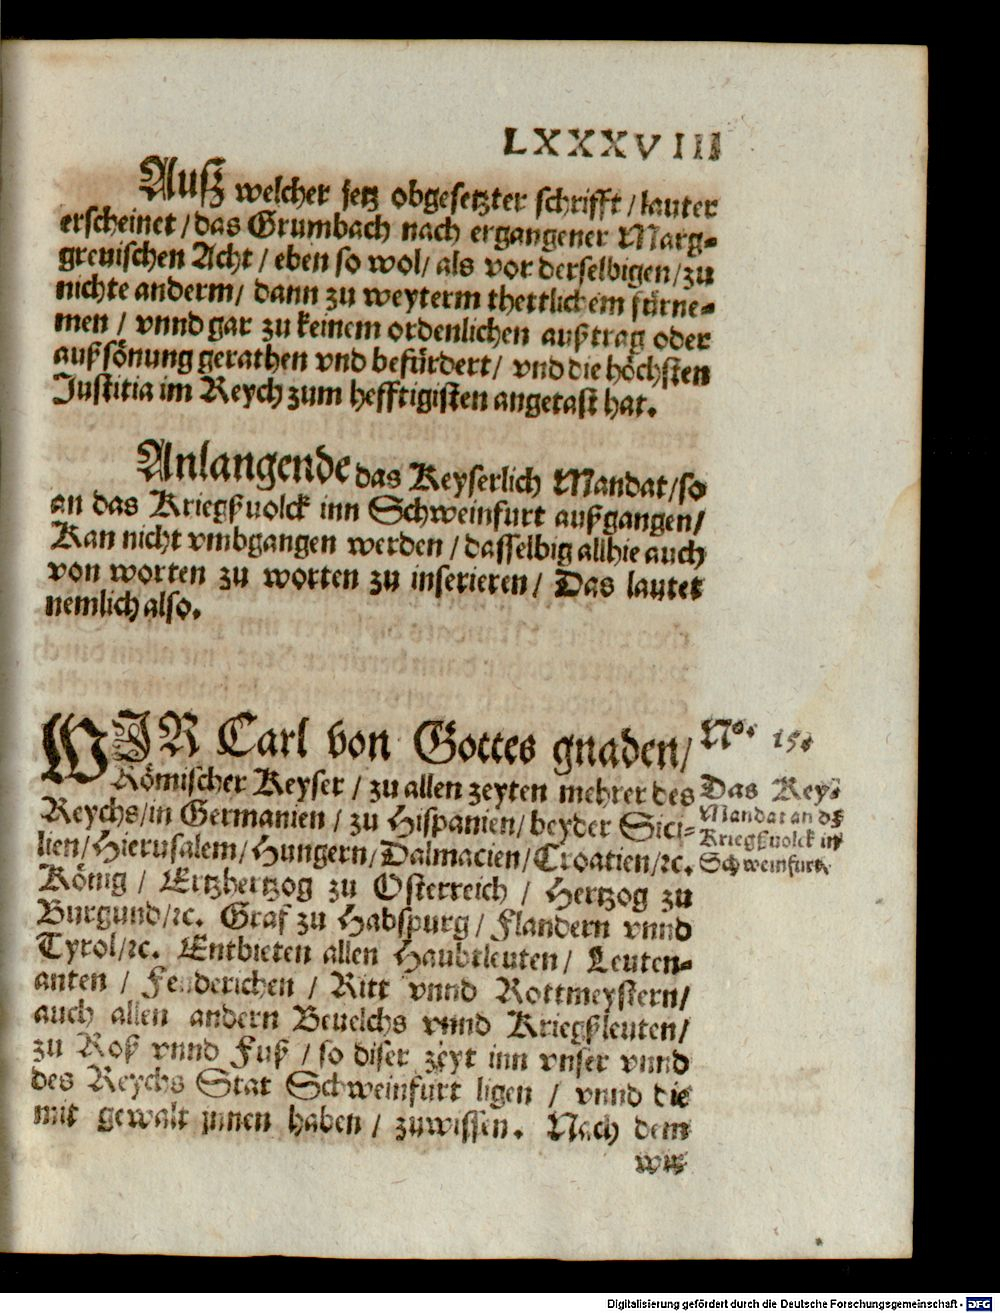 LXXXVIII
Auß welcher jetz obgesetzter schrifft / lauter
erscheinet / das Grumbach nach ergangener Marg-
greuischen Acht / eben so wol / als vor derselbigen / zu
nichte anderm / dann zu weyterm thettlichem fürne-
men / vnnd gar zu keinem ordenlichen außtrag oder
außsönung gerathen vnd befürdert / vnd die höchsten
Justitia im Reych zum hefftigisten angetast hat.
Anlangende das Keyserlich Mandat / so
an das Kriegßuolck inn Schweinfurt außgangen /
Kan nicht vmbgangen werden / dasselbig allhie auch
von worten zu worten zu inserieren / Das lautet
nemlich also.
WIR Carl von Gottes gnaden /
Römischer Keyser / zu allen zeyten mehrer des
Reychs / in Germanien / zu Hispanien / beyder Sici-
lien / Hierusalem / Hungern / Dalmacien / Croatien / ꝛc.
König / Ertzhertzog zu Osterreich / Hertzog zu
Burgund / ꝛc. Graf zu Habspurg / Flandern vnnd
Tyrol / ꝛc. Entbieten allen Haubtleuten / Leuten-
anten / Fenderichen / Ritt vnnd Rottmeystern /
auch allen andern Beuelchs vnnd Kriegßleuten /
zu Roß vnnd Fuß / so diser zeyt inn vnser vnnd
des Reychs Stat Schweinfurt ligen / vnnd die
mit gewalt jnnen haben / zuwissen. Nach dem
wir
No. 15.
Das Key.
Mandat an dz
Kriegßuolck in
Schweinfurt.